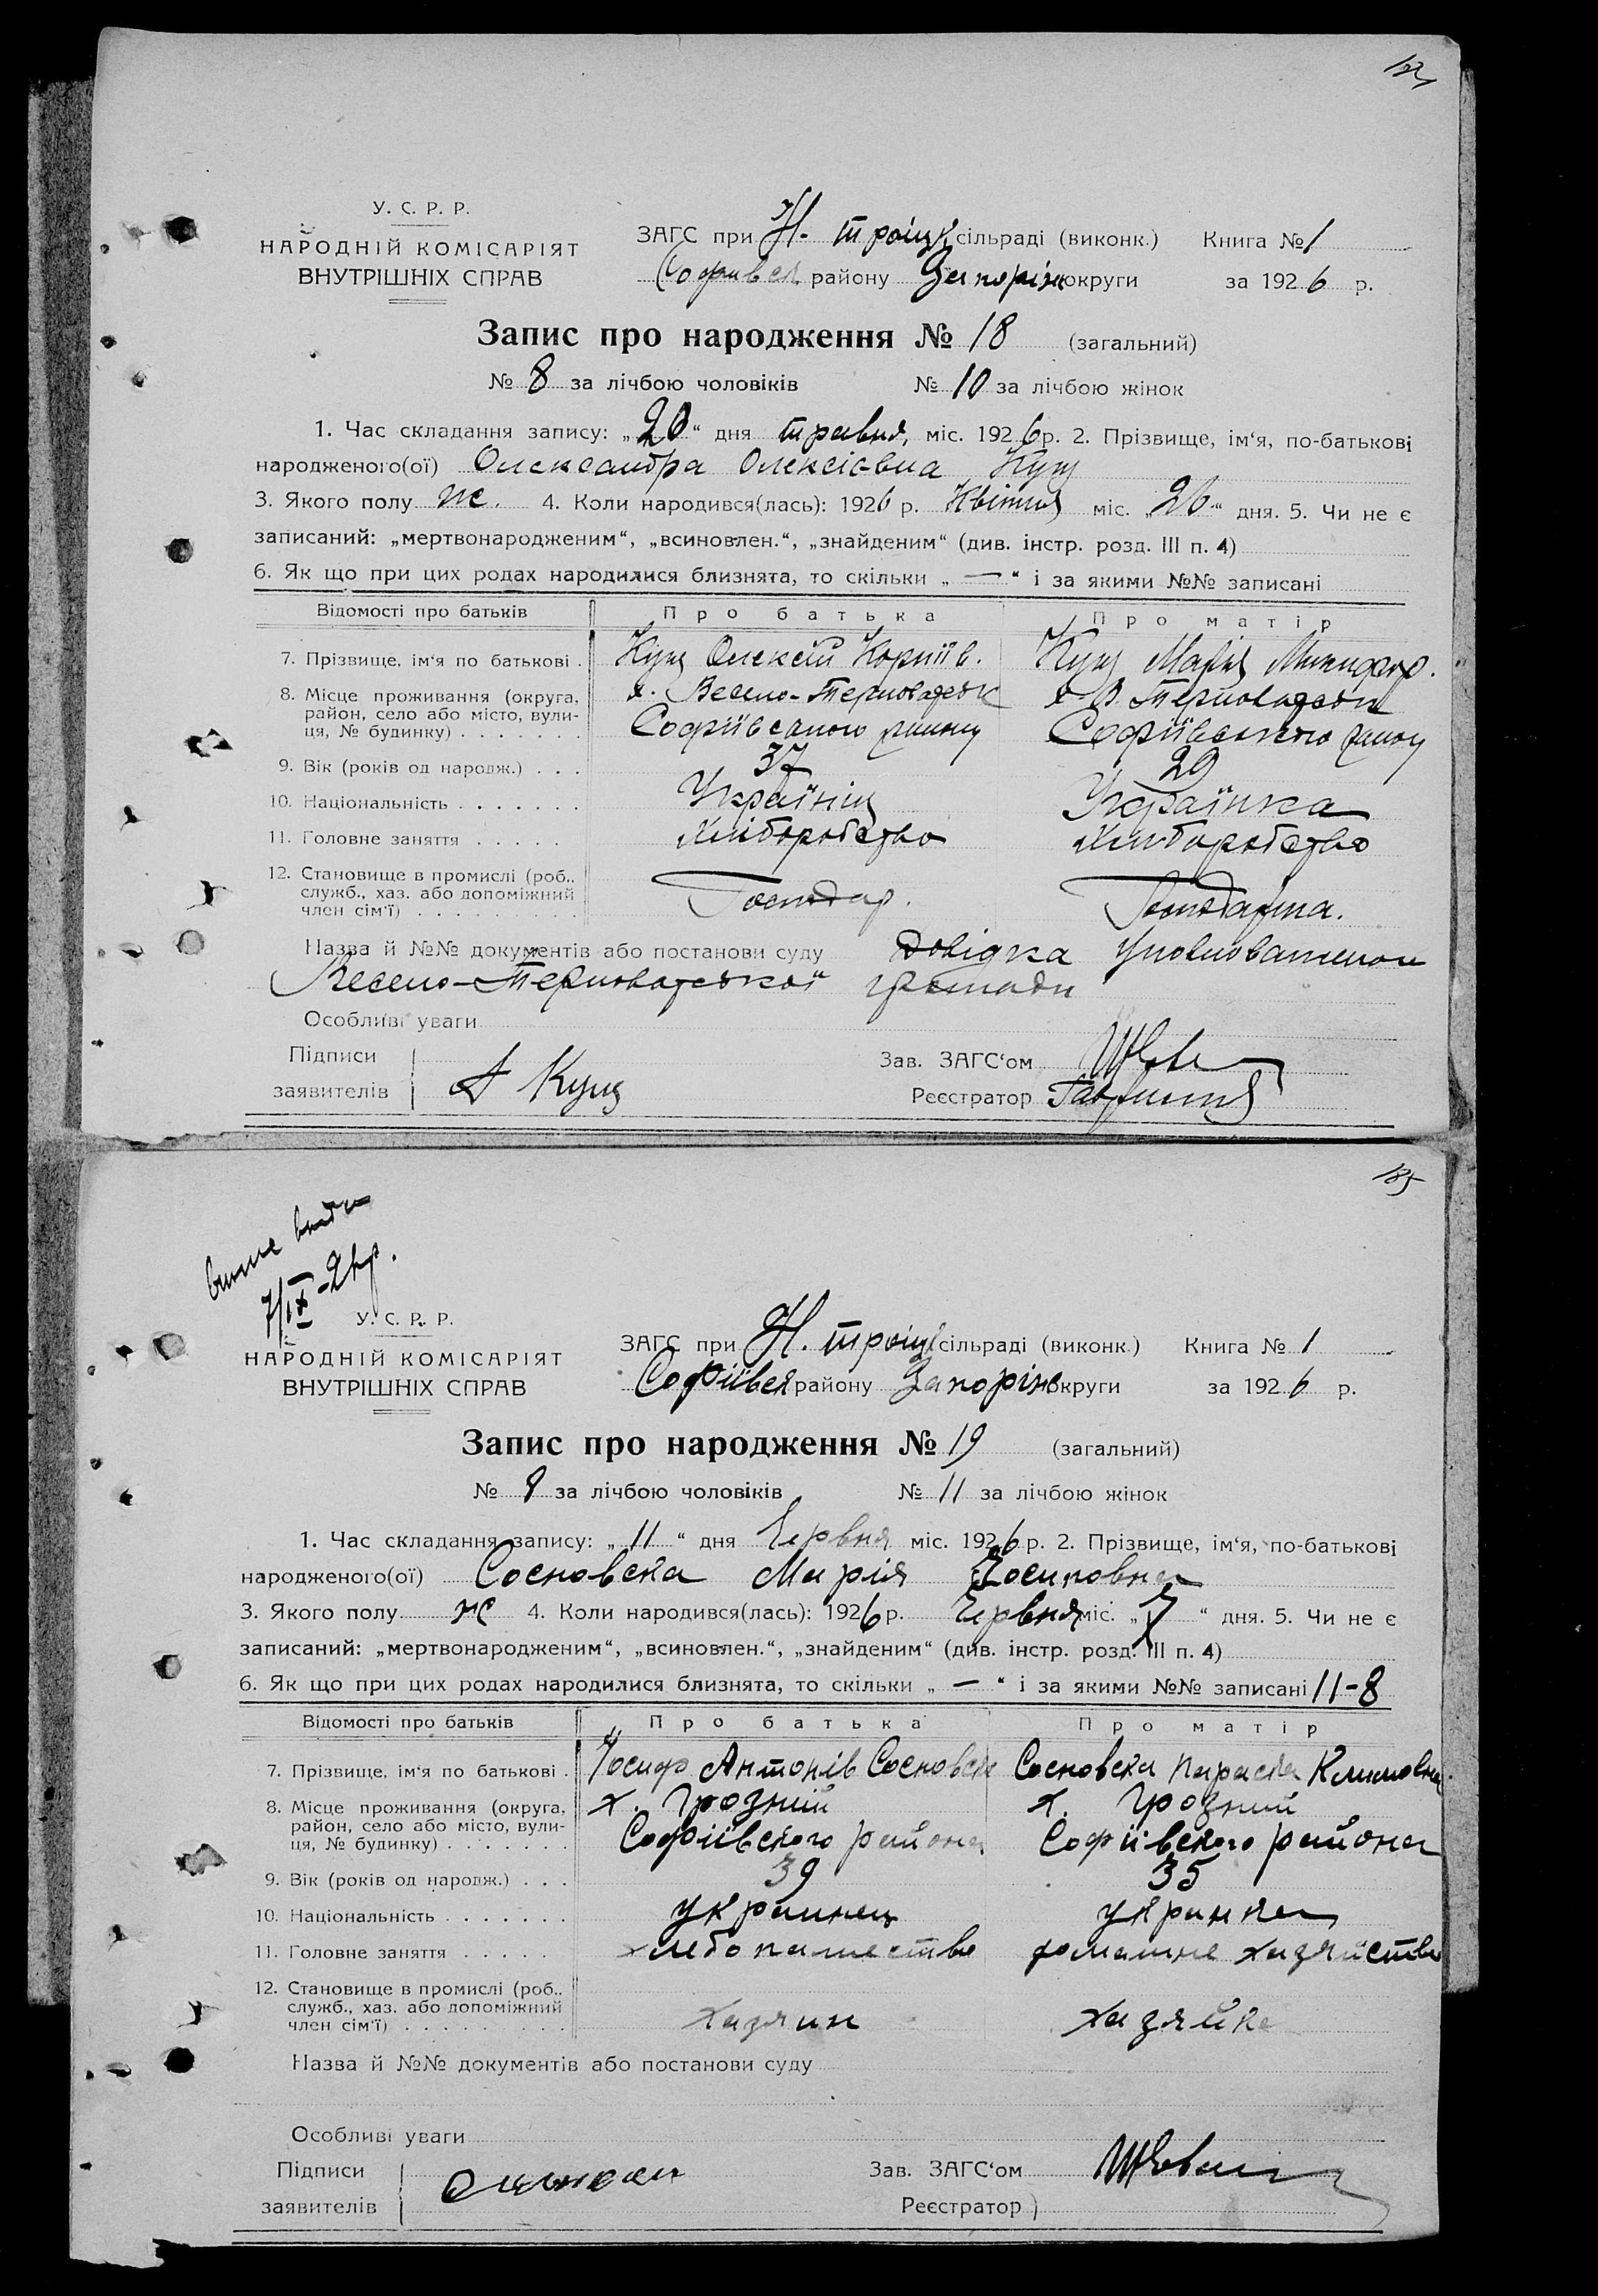 У. С. Р. Р.
НАРОДНІЙ КОМІСАРІЯТ
ВНУТРІШНІХ СПРАВ
ЗАГС при Н. троіцкі сільраді (виконк.) Книга № 1
району Запоріж округи за 1926 р.
Запис про народження № 18 (загальний)
№ 8 за лічбою чоловіків № 10 за лічбою жінок
1. Час складання запису: „20“ дня травня, міс. 1926 р. 2. Прізвище, ім‘я, по-батькові
народженого(ої) Олександра Олексієвна Кущ
3. Якого полу ж. 4. Коли народився(лась): 1926 р. Квітня міс. „26“ дня. 5. Чи не є
записаний: „мертвонародженим“, „всиновлен.“, „знайденим“ (див. інстр. розд. III п. 4)
6. Як що при цих родах народилися близнята, то скільки „ — “ і за якими №№ записані
Відомості про батьків Про батька Про матір
7. Прізвище, ім‘я по батькові . Кущ Олексій Корніїв. Кущ Марія Микифор.
8. Місце проживання (округа, х. Весело-Терноватськ х В Терноватськ
район, село або місто, вули- Софіївського району Софіївського району
ця, № будинку) . . . . . . .
9. Вік (років од народж.) . . . 37 29
10. Національність . . . . . . . Українець Українка
11. Головне заняття . . . . . Хліборобство Хліборобство
12. Становище в промислі (роб.,
служб., хаз. або допоміжний Господар. Господарка.
член сім‘ї) . . . . . . . . .
Назва й №№ документів або постанови суду Довідка Уповноваженого
Весело-Терноватської громади
Особливі уваги
Підписи Зав. ЗАГС‘ом
заявителів А Кущ Реєстратор
185
7/IX
У. С. Р. Р.
НАРОДНІЙ КОМІСАРІЯТ
ВНУТРІШНІХ СПРАВ
ЗАГС при Н. троіцкі сільраді (виконк.) Книга № 1
Софіівся району Запоріж округи за 1926 р.
Запис про народження № 19 (загальний)
№ 8 за лічбою чоловіків № 11 за лічбою жінок
1. Час складання запису: „11“ дня Червня міс. 1926 р. 2. Прізвище, ім‘я, по-батькові
народженого(ої) Сосновска Марія Йосиповна
3. Якого полу ж 4. Коли народився(лась): 1926 р. Червня міс. „7“ дня. 5. Чи не є
записаний: „мертвонародженим“, „всиновлен.“, „знайденим“ (див. інстр. розд. III п. 4)
6. Як що при цих родах народилися близнята, то скільки „ — “ і за якими №№ записані 11-8
Відомості про батьків Про батька Про матір
7. Прізвище, ім‘я по батькові . Йосиф Антонів Сосновск Сосновска Параска Климовна
8. Місце проживання (округа, х. Грозний х. Грозний
район, село або місто, вули- Софіівского района Софіівского района
ця, № будинку) . . . . . . .
9. Вік (років од народж.) . . . 39 35
10. Національність . . . . . . . украинец украинка
11. Головне заняття . . . . . хлебопашество домашне хазяйство
12. Становище в промислі (роб.,
служб., хаз. або допоміжний хазяин хазяйка
член сім‘ї) . . . . . . . . .
Назва й №№ документів або постанови суду
Особливі уваги
Підписи Зав. ЗАГС‘ом
заявителів Реєстратор